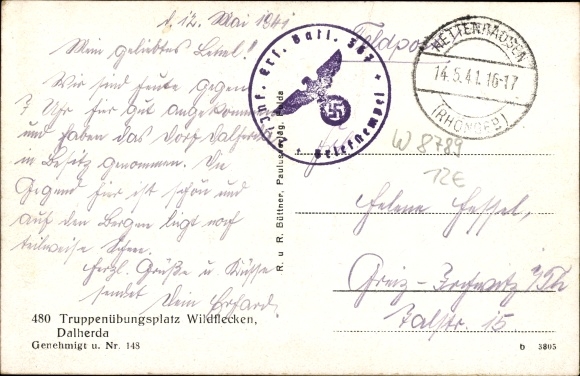 d. 12. Mai 1941
Mein geliebtes
Wir sind heute gegen
7 Uhr hier gut angekommen
und haben das Dorf Dalherda
in Besitz genommen. Die
Gegend hier ist schön und
auf den Bergen liegt noch
teilweise Schnee.
Herzl. Grüße u. Küsse
sendet Dein Erhard.
480 Truppenübungsplatz Wildflecken,
Dalherda
Genehmigt u. Nr. 148
R. u R. Büttner, Paulusverlag, Fulda
Inf. Ers. Batl.
* Briefstempel *
Feldpost
HETTENHAUSEN
14.5.41.16-17
(RHÖNGEB)
W 8789
12E
Helene Hessel,
Greiz-
Talstr. 15
b 3805